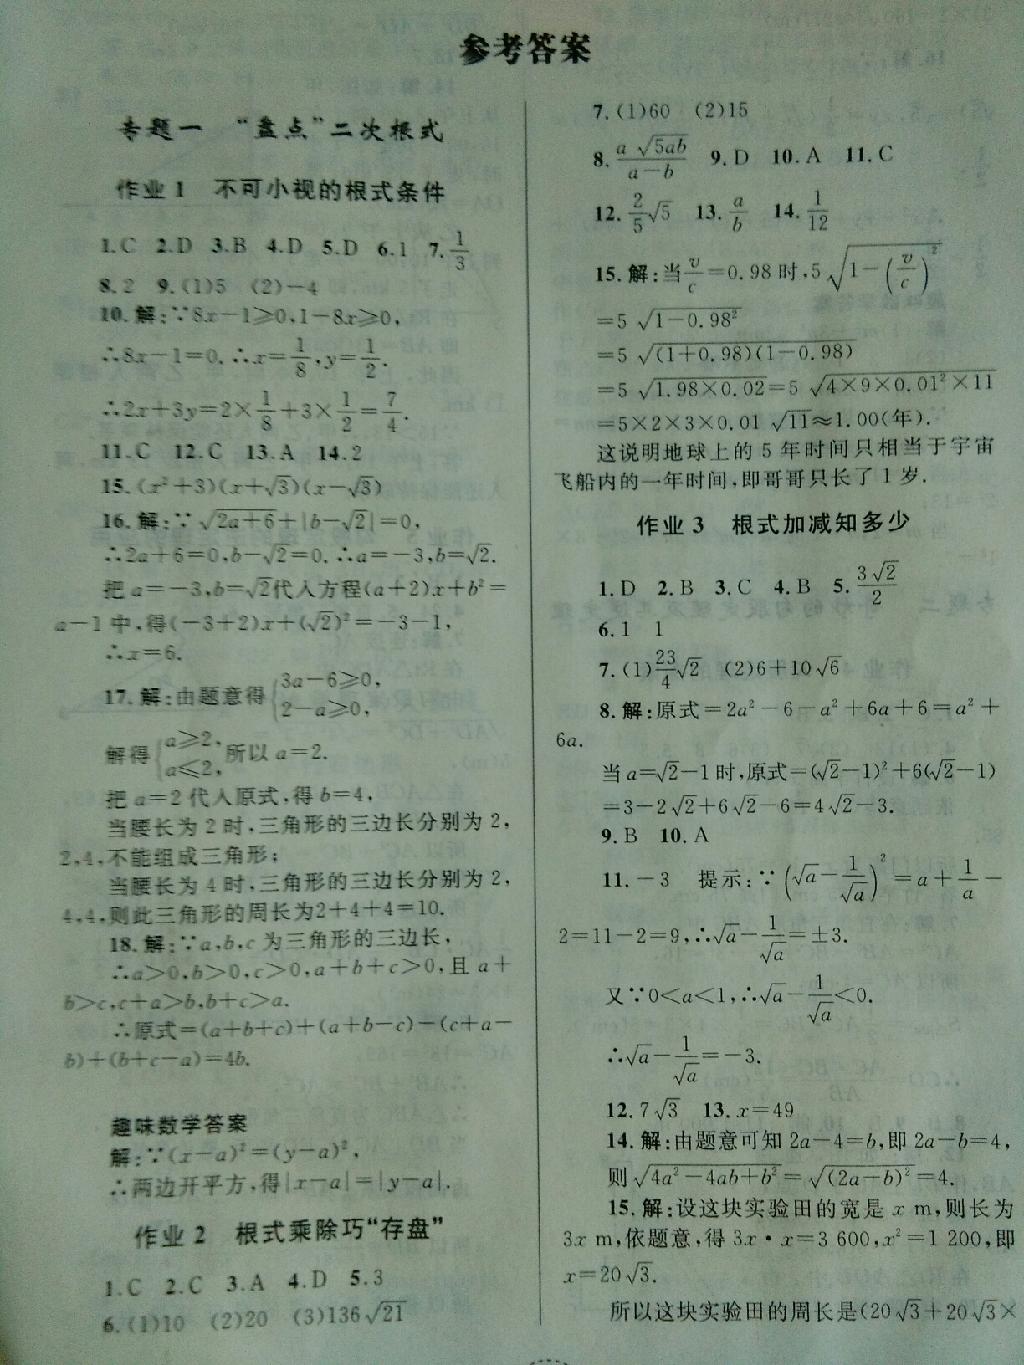 参考答案
专题一 “盘点”二次根式
作业1 不可小视的根式条件
1.C 2.D 3.B 4.D 5.D 6.1 7.1/3
8.2 9.(1)5 (2)-4
10.解:∵8x-1≥0,1-8x≥0,
∴8x-1=0,∴x=1/8,y=1/2.
∴2x+3y=2×1/8+3×1/2=7/4.
11.C 12.C 13.A 14.2
15.(x²+3)(x+√3)(x-√3)
16.解:∵√(2a+6)+|b-√2|=0,
∴2a+6=0,b-√2=0.∴a=-3,b=√2.
把a=-3,b=√2代入方程(a+2)x+b²=
a-1中,得(-3+2)x+(√2)²=-3-1,
∴x=6.
17.解:由题意得{3a-6≥0,
2-a≥0,
解得{a≥2,
a≤2,所以a=2.
把a=2代入原式,得b=4,
当腰长为2时,三角形的三边长分别为2,
2,4,不能组成三角形;
当腰长为4时,三角形的三边长分别为2,
4,4,则此三角形的周长为2+4+4=10.
18.解:∵a,b,c为三角形的三边长,
∴a>0,b>0,c>0,a+b+c>0,且a+
b>c,c+a>b,b+c>a.
∴原式=(a+b+c)+(a+b-c)-(c+a-
b)+(b+c-a)=4b.
趣味数学答案
解:∵(x-a)²=(y-a)²,
∴两边开平方,得|x-a|=|y-a|.
作业2 根式乘除巧“存盘”
1.C 2.C 3.A 4.D 5.3
6.(1)10 (2)20 (3)136√21
7.(1)60 (2)15
8.a√(5ab)/(a-b) 9.D 10.A 11.C
12.2/5√5 13.a/b 14.1/12
15.解:当v/c=0.98时,5√(1-(v/c)²)
=5√(1-0.98²)
=5√((1+0.98)(1-0.98))
=5√(1.98×0.02)=5√(4×9×0.01²×11)
=5×2×3×0.01√11≈1.00(年).
这说明地球上的5年时间只相当于宇宙
飞船内的一年时间,即哥哥只长了1岁.
作业3 根式加减知多少
1.D 2.B 3.C 4.B 5.3√2/2
6.1 1
7.(1)23/4√2 (2)6+10√6
8.解:原式=2a²-6-a²+6a+6=a²+
6a.
当a=√2-1时,原式=(√2-1)²+6(√2-1)
=3-2√2+6√2-6=4√2-3.
9.B 10.A
11.-3 提示:∵(√a-1/√a)²=a+1/a-
2=11-2=9,∴√a-1/√a=±3.
又∵0<a<1,∴√a-1/√a<0.
∴√a-1/√a=-3.
12.7√3 13.x=49
14.解:由题意可知2a-4=b,即2a-b=4,
则√(4a²-4ab+b²)=√((2a-b)²)=4.
15.解:设这块实验田的宽是x m,则长为
3x m,依题意,得3x·x=3 600,x²=1 200,即
x=20√3.
所以这块实验田的周长是(20√3+20√3×